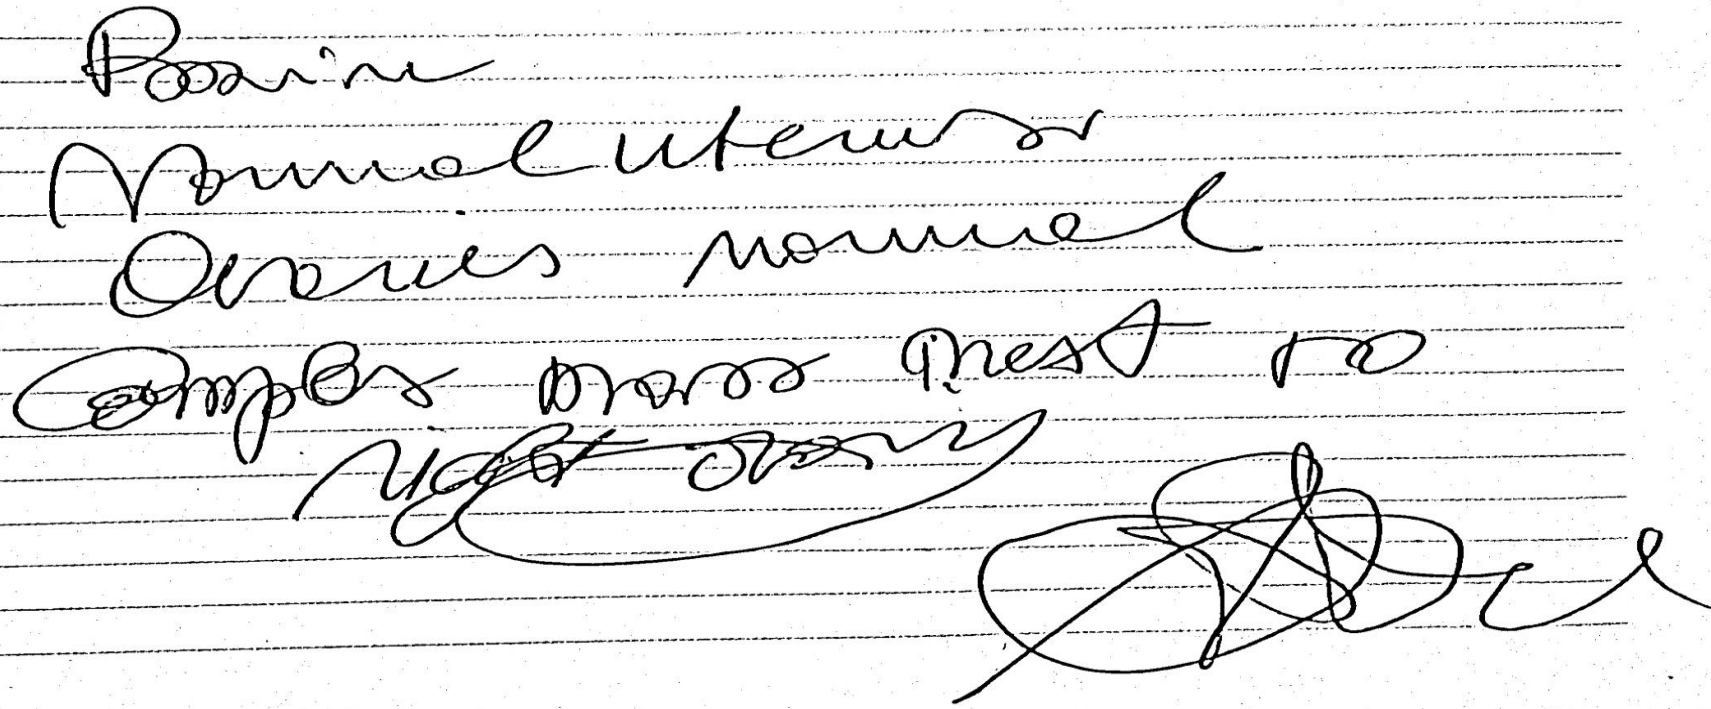 Normal uterus
Ovaries normal
Complex mass next to
right ovary